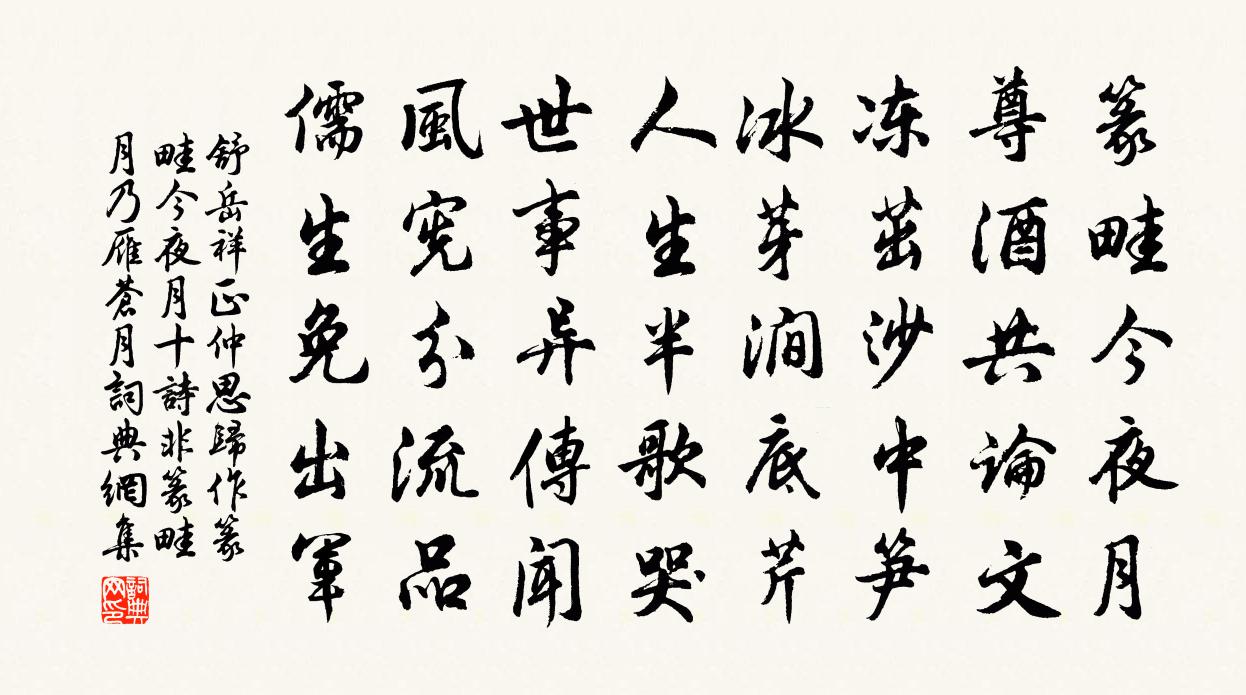 篆畦今夜月
尊酒共論文
冻茁沙中笋
冰芽澗底芹
人生半歌哭
世事异傳聞
風宪分流品
儒生免出軍
舒岳祥正仲思歸作篆
畦今夜月十詩非篆畦
月乃雁蒼月詞典網集